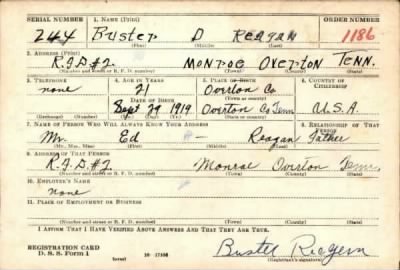 SERIAL NUMBER 1. NAME (Print) ORDER NUMBER
244 Buster D Reagan 1186
(First) (Middle) (Last)
2. ADDRESS (Print)
R.F.D.#2 Monroe Overton Tenn.
(Number and street or R. F. D. number) (Town) (County) (State)
3. TELEPHONE 4. AGE IN YEARS 5. PLACE OF BIRTH 6. COUNTRY OF CITIZENSHIP
none 21 Overton Co
DATE OF BIRTH (Town or county)
Sept 29 1919 Overton Co Tenn U.S.A.
(Exchange) (Number) (Mo.) (Day) (Yr.) (State or country)
7. NAME OF PERSON WHO WILL ALWAYS KNOW YOUR ADDRESS 8. RELATIONSHIP OF THAT PERSON
Mr. Ed Reagan Father
(Mr., Mrs., Miss) (First) (Middle) (Last)
9. ADDRESS OF THAT PERSON
R.F.D.#2 Monroe Overton Tenn.
(Number and street or R. F. D. number) (Town) (County) (State)
10. EMPLOYER'S NAME
none
11. PLACE OF EMPLOYMENT OR BUSINESS
(Number and street or R. F. D. number) (Town) (County) (State)
I AFFIRM THAT I HAVE VERIFIED ABOVE ANSWERS AND THAT THEY ARE TRUE.
REGISTRATION CARD
D. S. S. Form 1 (over) 16-17105 Buster Reagan
(Registrant's signature)